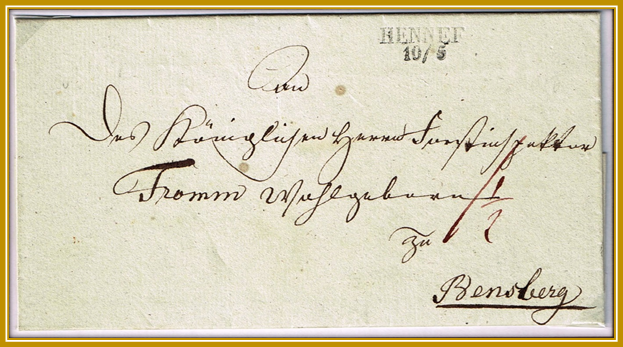 HENNEF
10/5
An
Des Königlichen Herrn Forstinspektor
Fromm Wohlgeboren
1/2
zu
Bensberg